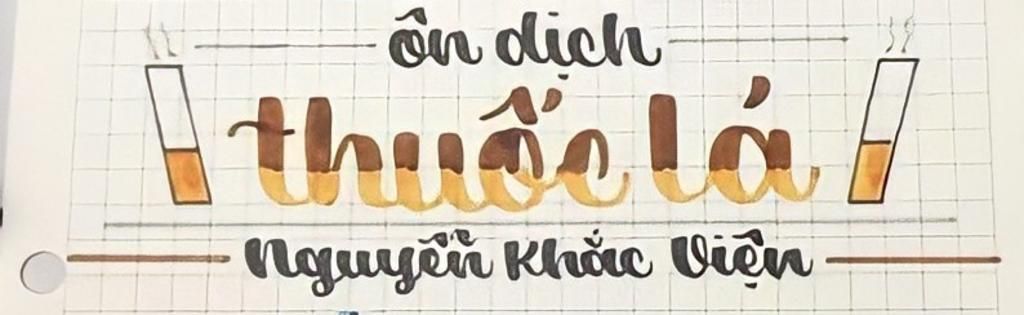 ôn dịch
thuốc lá
Nguyễn Khắc Viện